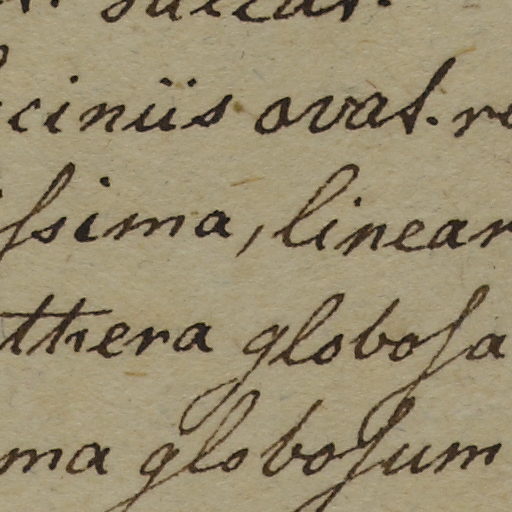 ciniis ovat. re
ſsima, linear
thera globoſa
ma globoſum